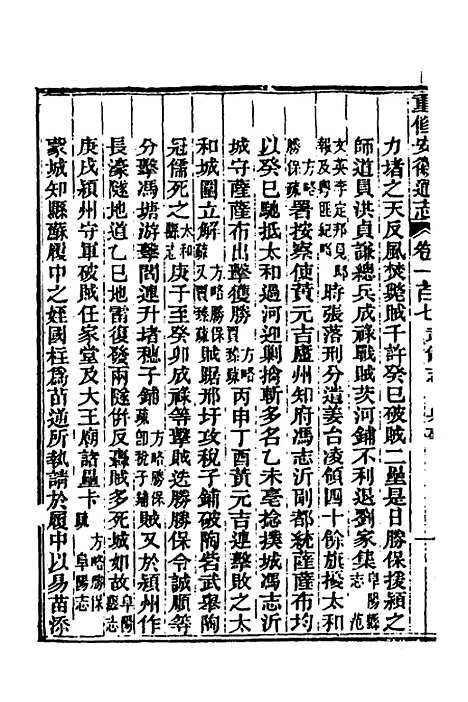 重修安徽通志 卷一百七 武備志
力堵之天反風焚斃賊千許癸巳破賊二壘是日勝保援潁之
師道員洪貞謙總兵成祿戰賊茨河鋪不利退劉家集阜陽縣志 范
文英李定邦見聞報及粵匪紀略時張落刑分遣姜台凌領四十餘旗擾太和
方略勝保疏署按察使黃元吉廬州知府馮志沂副都統薩薩布均
以癸巳馳抵太和過河迎剿擒斬多名乙未亳捻撲城馮志沂
城守薩薩布出擊獲勝方略賈臻疏丙申丁酉黃元吉連擊敗之太
和城圍立解方略勝保疏又賈臻疏賊踞邢圩攻稅子鋪破陶砦武舉陶
冠儒死之太和縣志庚子至癸卯成祿等擊賊迭勝勝保令誠順等
分擊馮塘游擊閻連升堵穗子鋪方略勝保疏卽稅子鋪賊又於潁州作
長濠隧地道乙巳地雷復發兩隧併反轟賊多死城如故阜陽縣志
庚戌潁州守軍破賊任家堂及大王廟諸壘卡方略勝保疏 阜陽志
蒙城知縣蘇履中之姪國柱爲苗逋所執請於履中以易苗添